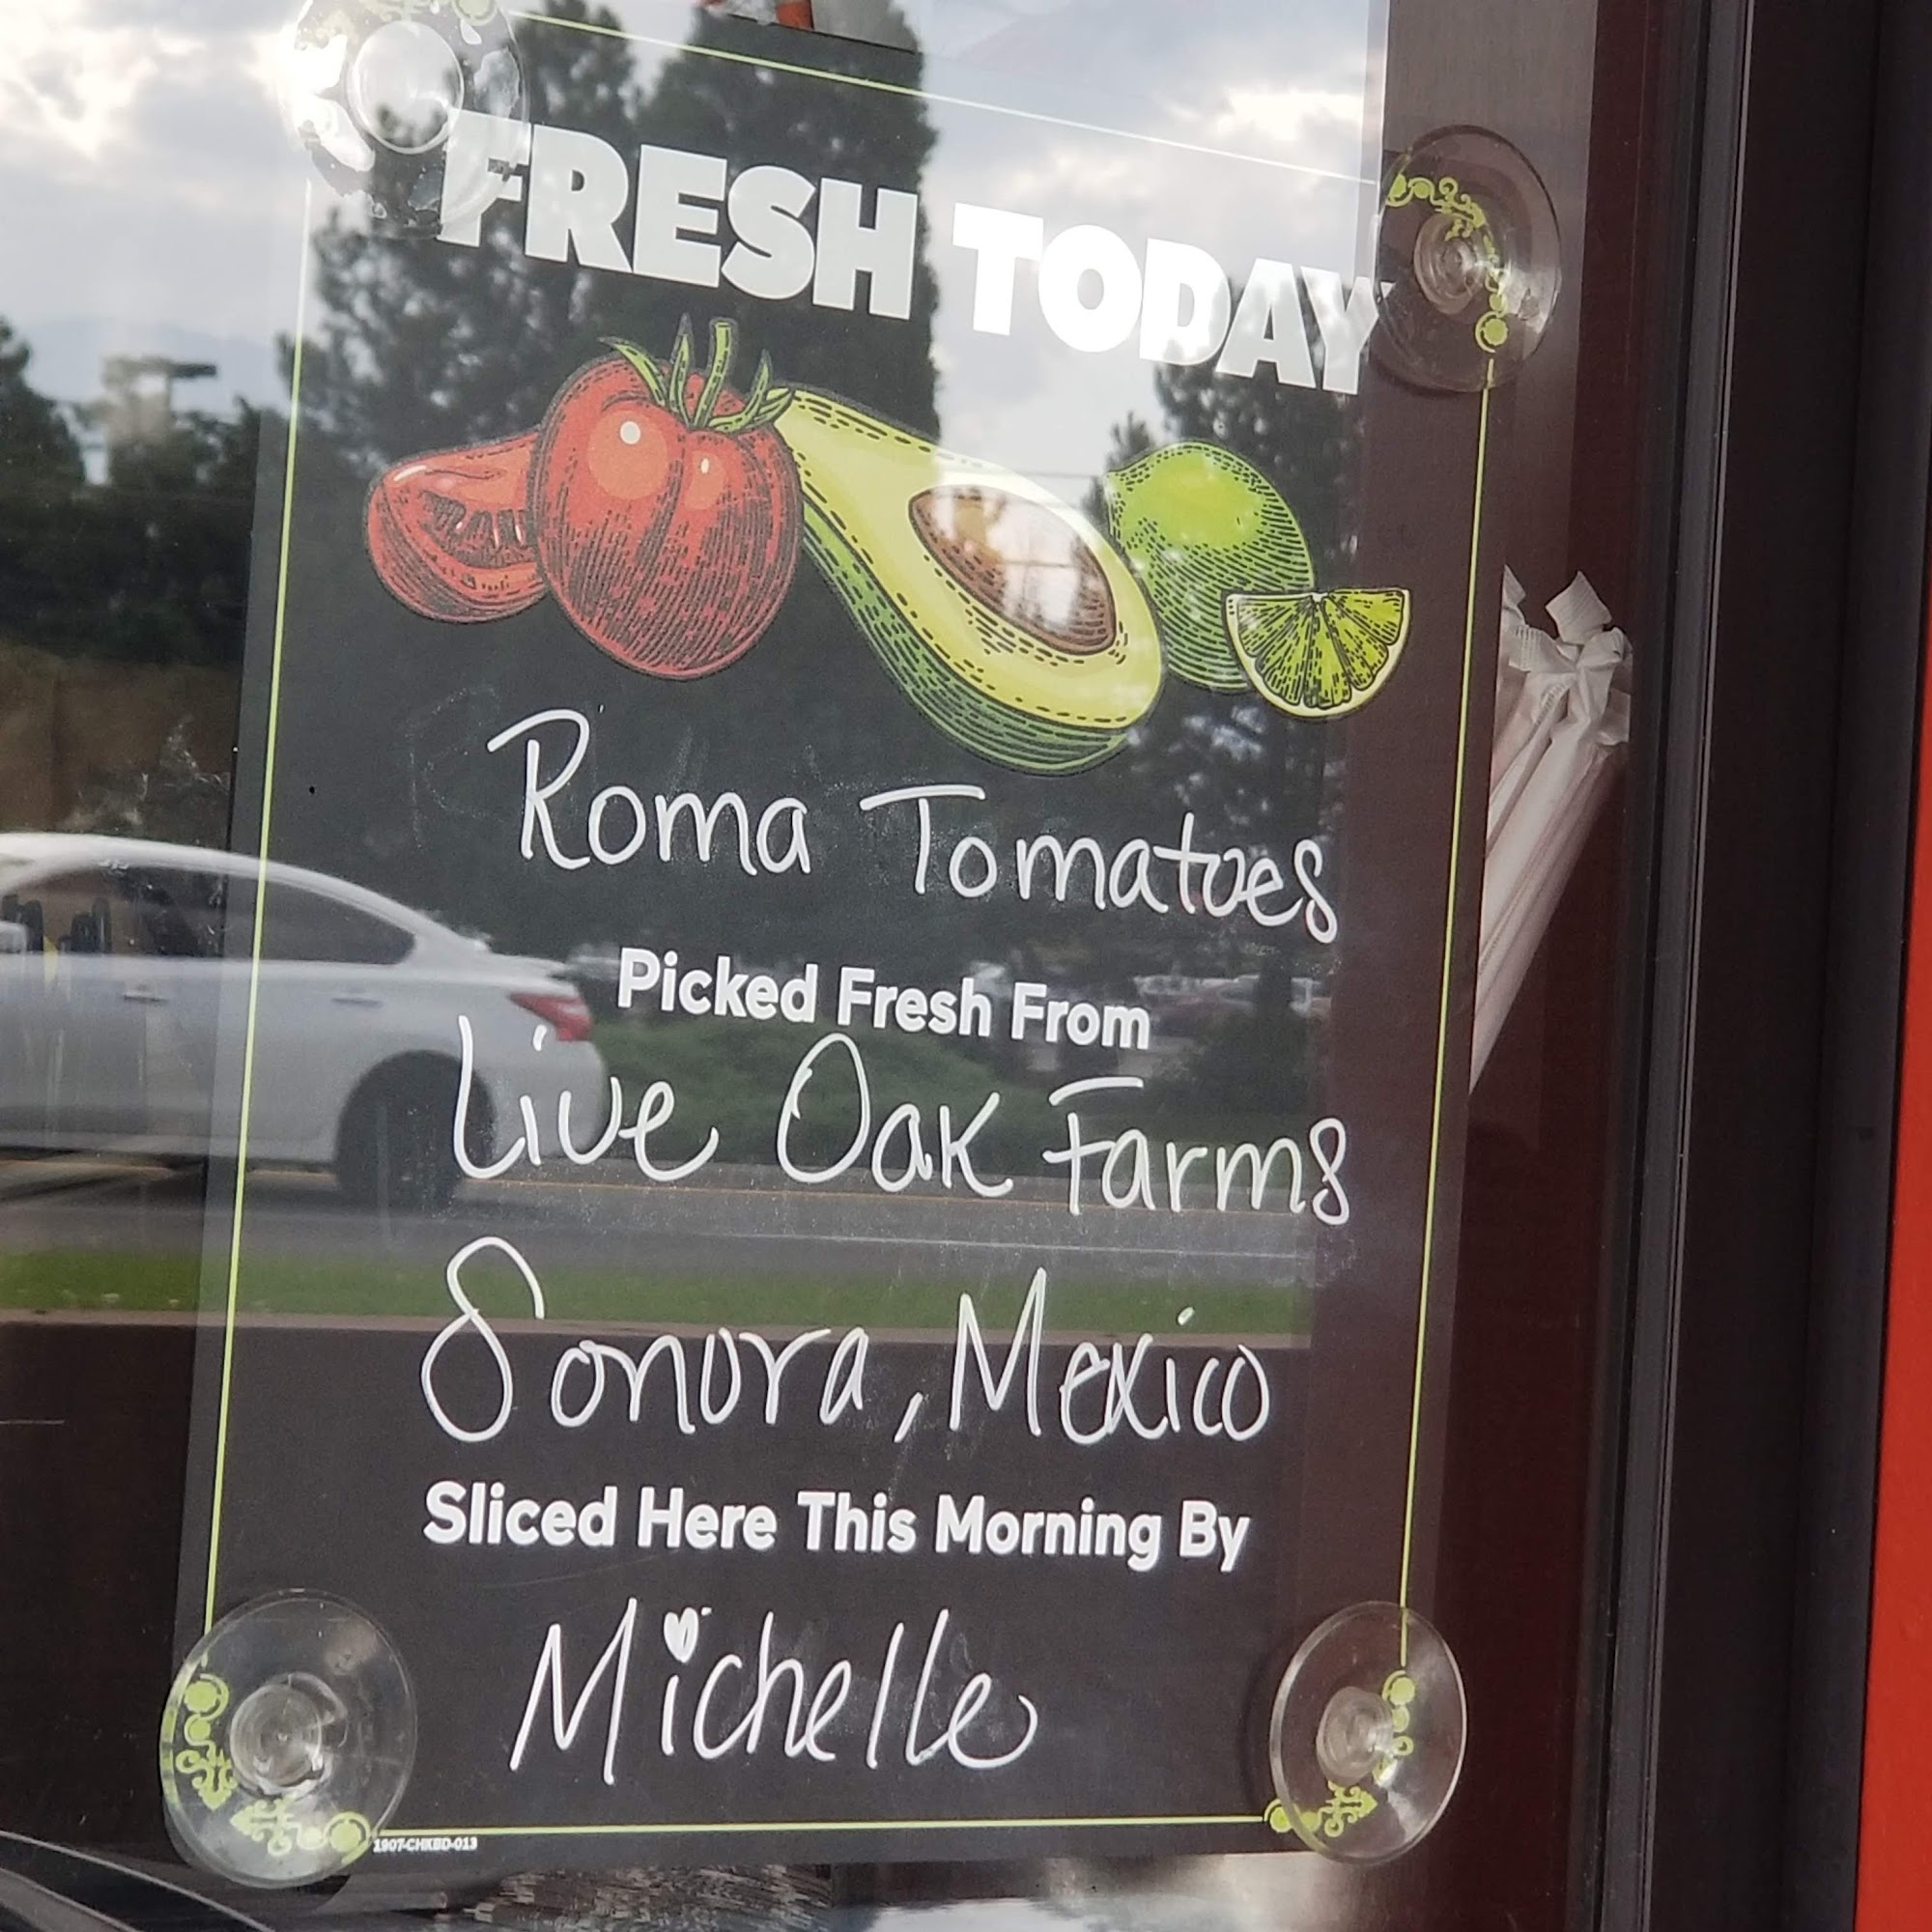 FRESH TODAY
Roma Tomatoes
Picked Fresh From
Live Oak Farms
Sonora, Mexico
Sliced Here This Morning By
Michelle
1907-CHKBD-013